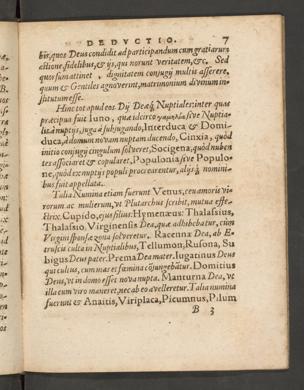 DEDVCTIO. 7
bir, quos Deus condidit ad participandum cum gratiarum
actione, fidelibus, & ijs, qui norunt veritatem, &c. Sed
quorsum attinet, dignitatem conjugij multis asserere,
quum & Gentiles agnoverint, matrimonium divinum in-
stitutum esse.
Hinc tot apud eos Dij Deæq; Nuptiales: inter quas
præcipua fuit Iuno, quæ ideirco sive Nuptia-
lis à nuptijs, juga à subjugando, Interduca & Domi-
duca, à domum novam nuptam ducendo, Cinxia, quòd
initio conjugij cingulum solveret, Socigena, quòd nuben-
tes associaret & copularet, Populonia sive Populo-
ne, quòd ex nuptijs populi procrearentur, alijsq; nomini-
bus fuit appellata.
Talia Numina etiam fuerunt Venus, ceu amoris vi-
rorum ac mulierum, ut Plutarchus scribit, mutua effe-
ctrix: Cupido, ejus filius: Hymenæus: Thalassius,
Thalassio, Virginensis Dea, quæ adhibebatur, cùm
Virgini sponsæ zona solveretur. Racenna Dea, ab E-
truscis culta in Nuptialibus, Tellumon, Rusona, Su
bigus Deus pater: Prema Dea mater: Iugatinus Deus
qui cultus, cum mas et fæmina cōjungebātur. Domitius
Deus, ut in domo esset nova nupta. Manturna Dea, ut
illa cum viro maneret, nec ab eo avelleretur. Talia numina
fuerunt & Anaitis, Viriplaca, Picumnus, Pilum
B 3